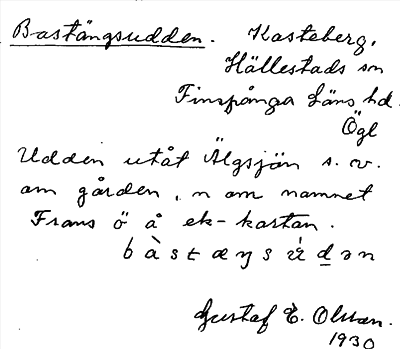 Bastängsudden. Kasteberg,
Hällestads sn
Finspånga Läns hd.
Ögl
Udden utåt Älgsjön s. v.
om gården, n om namnet
Frans ö å ek-kartan.
Gustaf E. Olsson.
1930